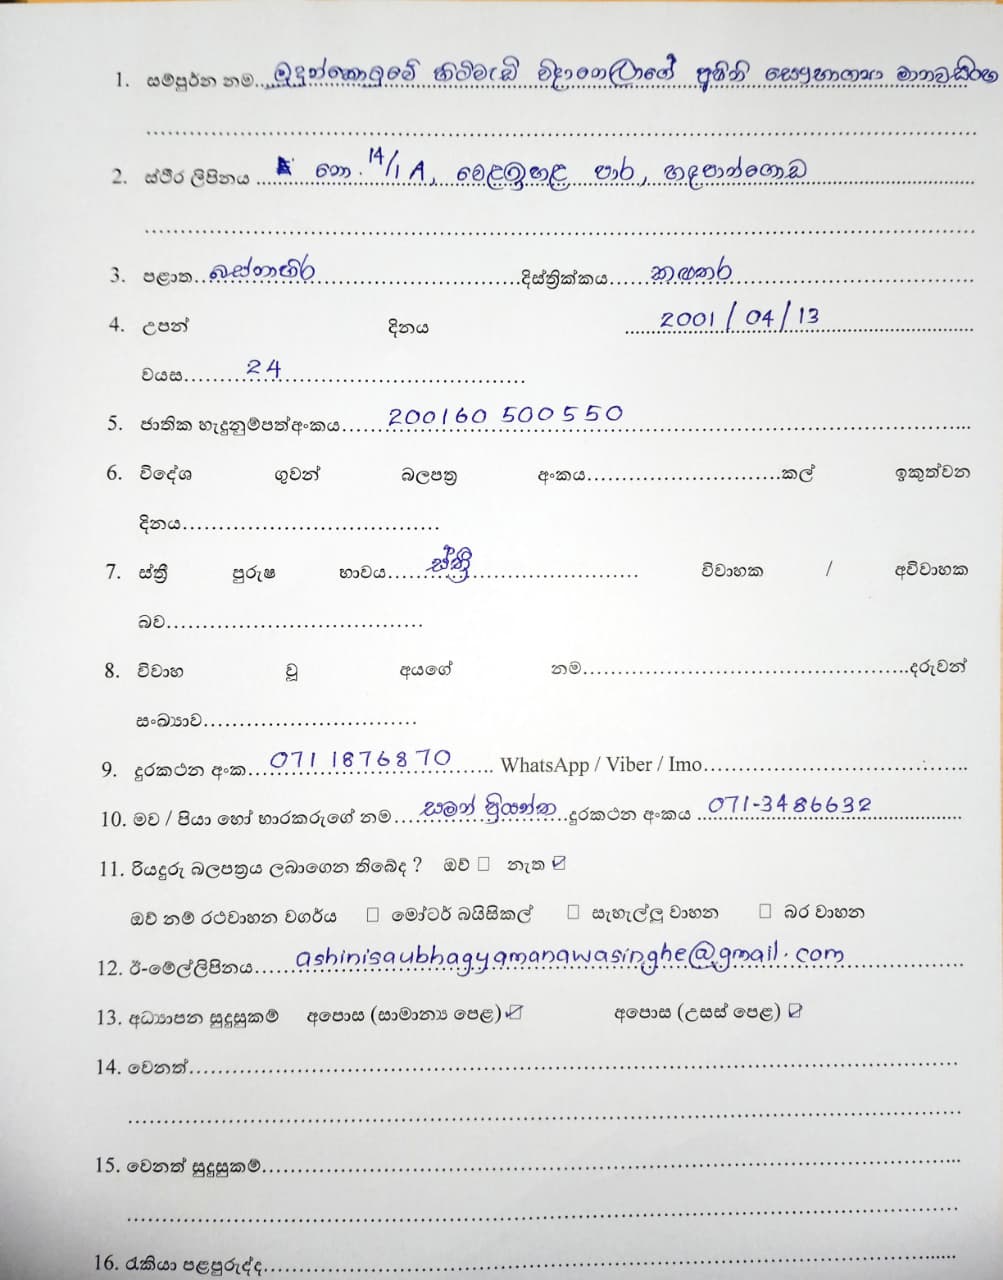 1. සම්පූර්න නම....මුදුන්කොටුවේ හිටිවැඩි විදානෙලාගේ අෂිනි සෞභාග්‍යා මානවසිංහ
2. ස්ථිර ලිපිනය ... නො. 14/1 A, මෙළඉහළ පාර, හඳපාන්ගොඩ
3. පළාත..බස්නාහිර....දිස්ත්‍රික්කය......කළුතර
4. උපන් දිනය ......2001 / 04 / 13
වයස.........24.........
5. ජාතික හැදුනුම්පත්අංකය......200160 500550
6. විදේශ ගුවන් බලපත්‍ර අංකය............................කල් ඉකුත්වන
දිනය.....................................
7. ස්ත්‍රී පුරුෂ භාවය......ස්ත්‍රී.................... විවාහක / අවිවාහක
බව.....................................
8. විවාහ වූ අයගේ නම...............................................දරුවන්
සංඛ්‍යාව...............................
9. දුරකථන අංක...071 1876870...... WhatsApp / Viber / Imo......................................
10. මව / පියා හෝ භාරකරුගේ නම....සමන් ප්‍රියන්ත..දුරකථන අංකය ..071-3486632
11. රියදුරු බලපත්‍රය ලබාගෙන තිබේද ? ඔව් ☐ නැත ☑
ඔව් නම් රථවාහන වර්ගය ☐ මෝටර් බයිසිකල් ☐ සැහැල්ලු වාහන ☐ බර වාහන
12. ඊ-මේල්ලිපිනය......ashinisaubhagyamanawasinghe@gmail.com
13. අධ්‍යාපන සුදුසුකම් අපොස (සාමාන්‍ය පෙළ) ☑ අපොස (උසස් පෙළ) ☑
14. වෙනත්..............................................................
15. වෙනත් සුදුසුකම්..............................................................
16. රැකියා පළපුරුද්ද..............................................................